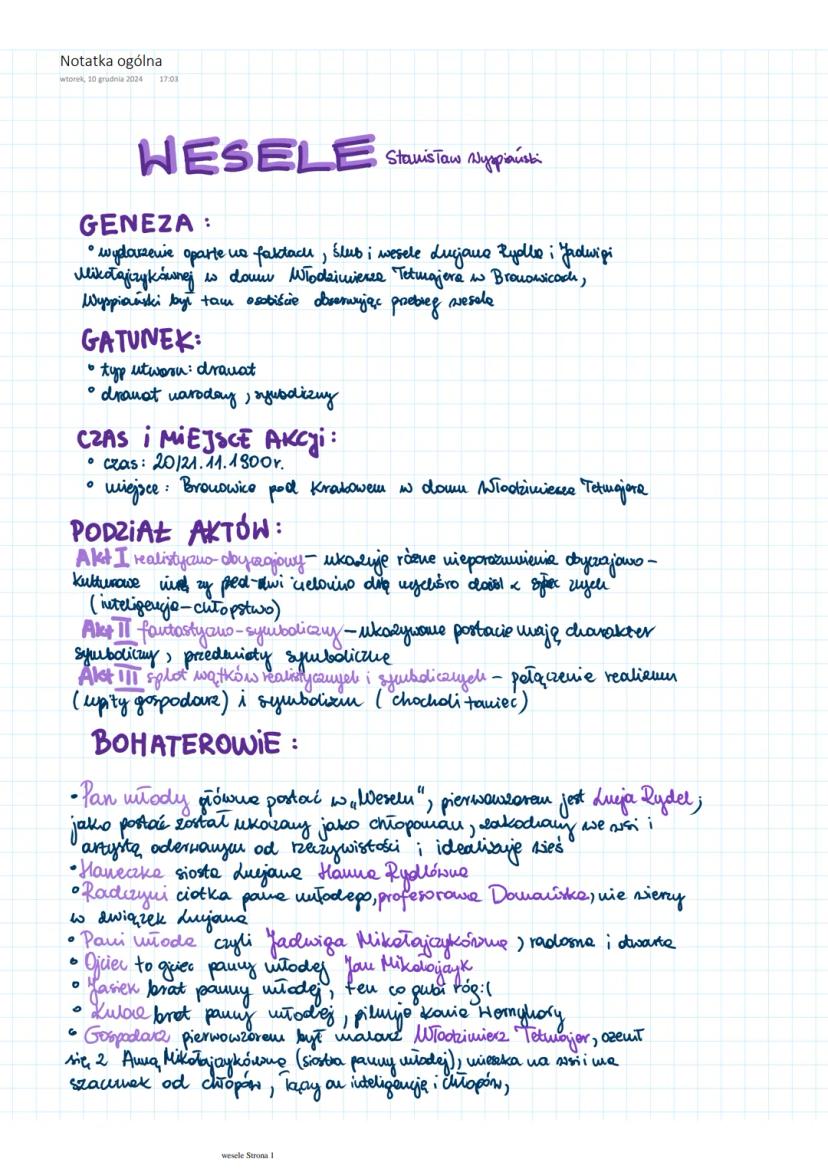 Notatka ogólna
wtorek, 10 grudnia 2024 17:03
WESELE Stanisław Wyspiański
GENEZA :
° wydarzenie oparte na faktach, ślub i wesele Lucjana Rydla i Jadwigi
Mikołajczykównej w domu Włodzimierza Tetmajera w Bronowicach,
Wyspiański był tam osobiście obserwując przebieg wesela
GATUNEK:
° typ utworu: dramat
° dramat narodowy, symboliczny
CZAS i MiEJSCE AKCji:
° czas: 20/21.11.1900r.
° miejsce: Bronowice pod Krakowem w domu Włodzimierza Tetmajera
PODZIAŁ AKTÓW:
Akt I realistyczno-obyczajowy – ukazuje różne nieporozumienia obyczajowo-
kulturowe
(inteligencja-chłopstwo)
Akt II fantastyczno-symboliczny – ukazywane postacie mają charakter
symboliczny, przedmioty symboliczne
Akt III splot wątków realistycznych i symbolicznych – połączenie realizmu
(upity gospodarz) i symbolizm (chocholi taniec)
BOHATEROWiE :
• Pan młody główna postać w „Weselu", pierwowzorem jest Lucja Rydel;
jako postać został ukazany jako chłopoman, zakochany we wsi i
artystą oderwanym od rzeczywistości i idealizuje wieś
• Haneczka siostra Lucjana Hanna Rydlówna
° Radczyni ciotka pana młodego, profesorowa Domańska, nie wierzy
w związek Lucjana
• Pani młoda czyli Jadwiga Mikołajczykówna, radosna i otwarta
• Ojciec to ojciec panny młodej Jan Mikołajczyk
• Jasiek brat panny młodej, ten co gubi róg:(
• Kuba brat panny młodej, pilnuje konia Wernyhory
• Gospodarz pierwowzorem był malarz Włodzimierz Tetmajer, ożenił
się z Anną Mikołajczykówną (siostra panny młodej), mieszka na wsi i ma
szacunek od chłopów, łączy on inteligencję i chłopów,
wesele Strona 1